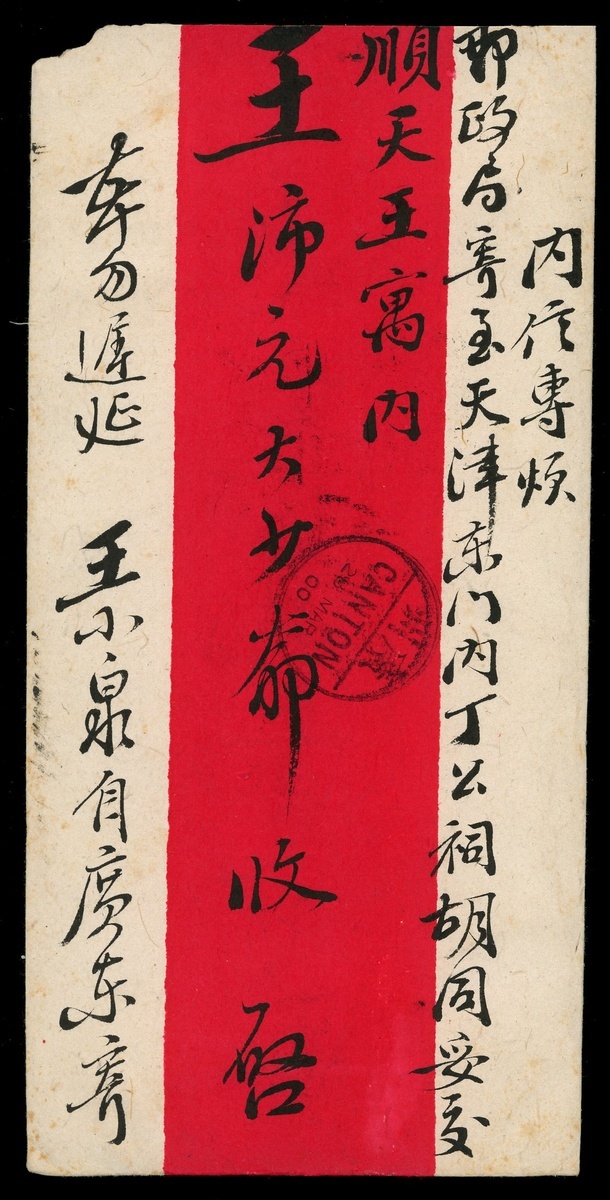 内信專煩
郵政局寄至天津東门内丁公祠胡同妥交
順天王寓内
王沛元大少爺收啓
幸勿遲延 王小泉自廣东寄
CANTON
MAR
00